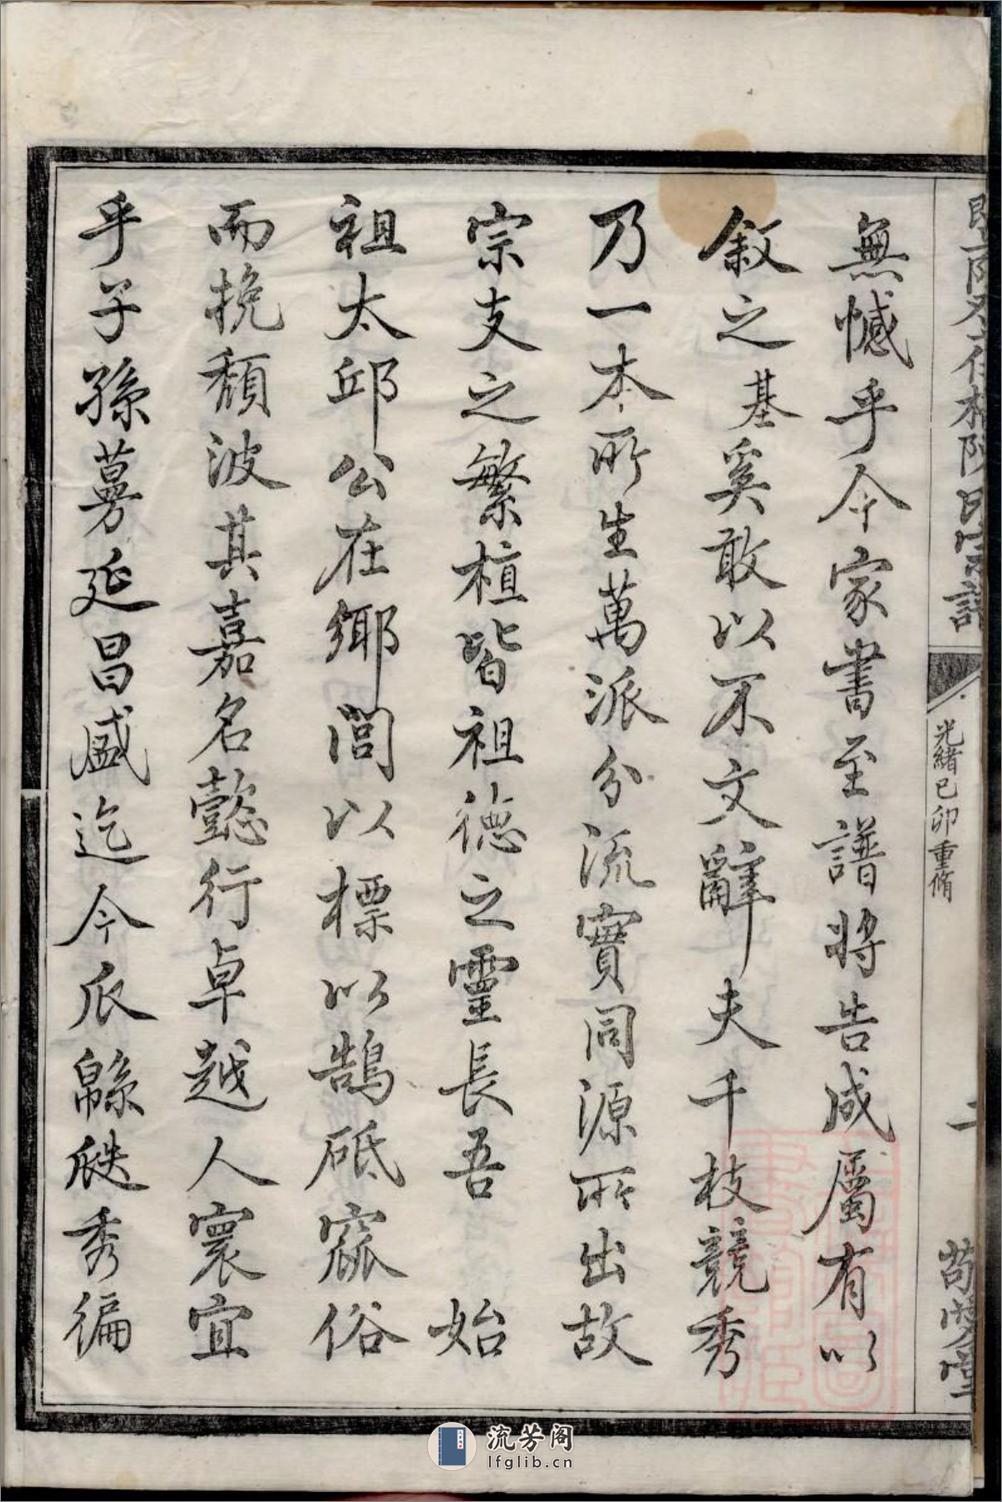 光緒己卯重脩
無憾乎今家書至譜將告成屬有以
敘之基奚敢以不文辭夫千枝競秀
乃一本所生萬派分流實同源所出故
宗支之繁植皆祖德之靈長吾始
祖太邱公在鄉閭以標以鵠砥窳俗
而挽頹波其嘉名懿行卓越人寰宜
乎子孫蕃延昌盛迄今瓜緜瓞秀徧
流芳阁
lfglib.cn